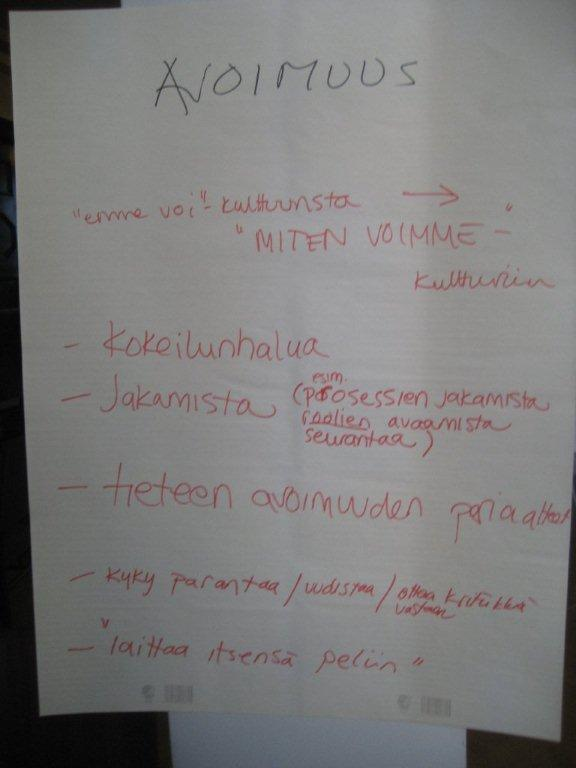 AVOIMUUS
"emme voi"-kulttuurista →
"MITEN VOIMME-"
kulttuuriin
- Kokeilunhalua
- Jakamista (esim. prosessien jakamista
roolien avaamista
seurantaa)
- tieteen avoimuuden periaatteet
- kyky parantaa / uudistaa / ottaa kritiikkiä
vastaan
- "laittaa itsensä peliin"